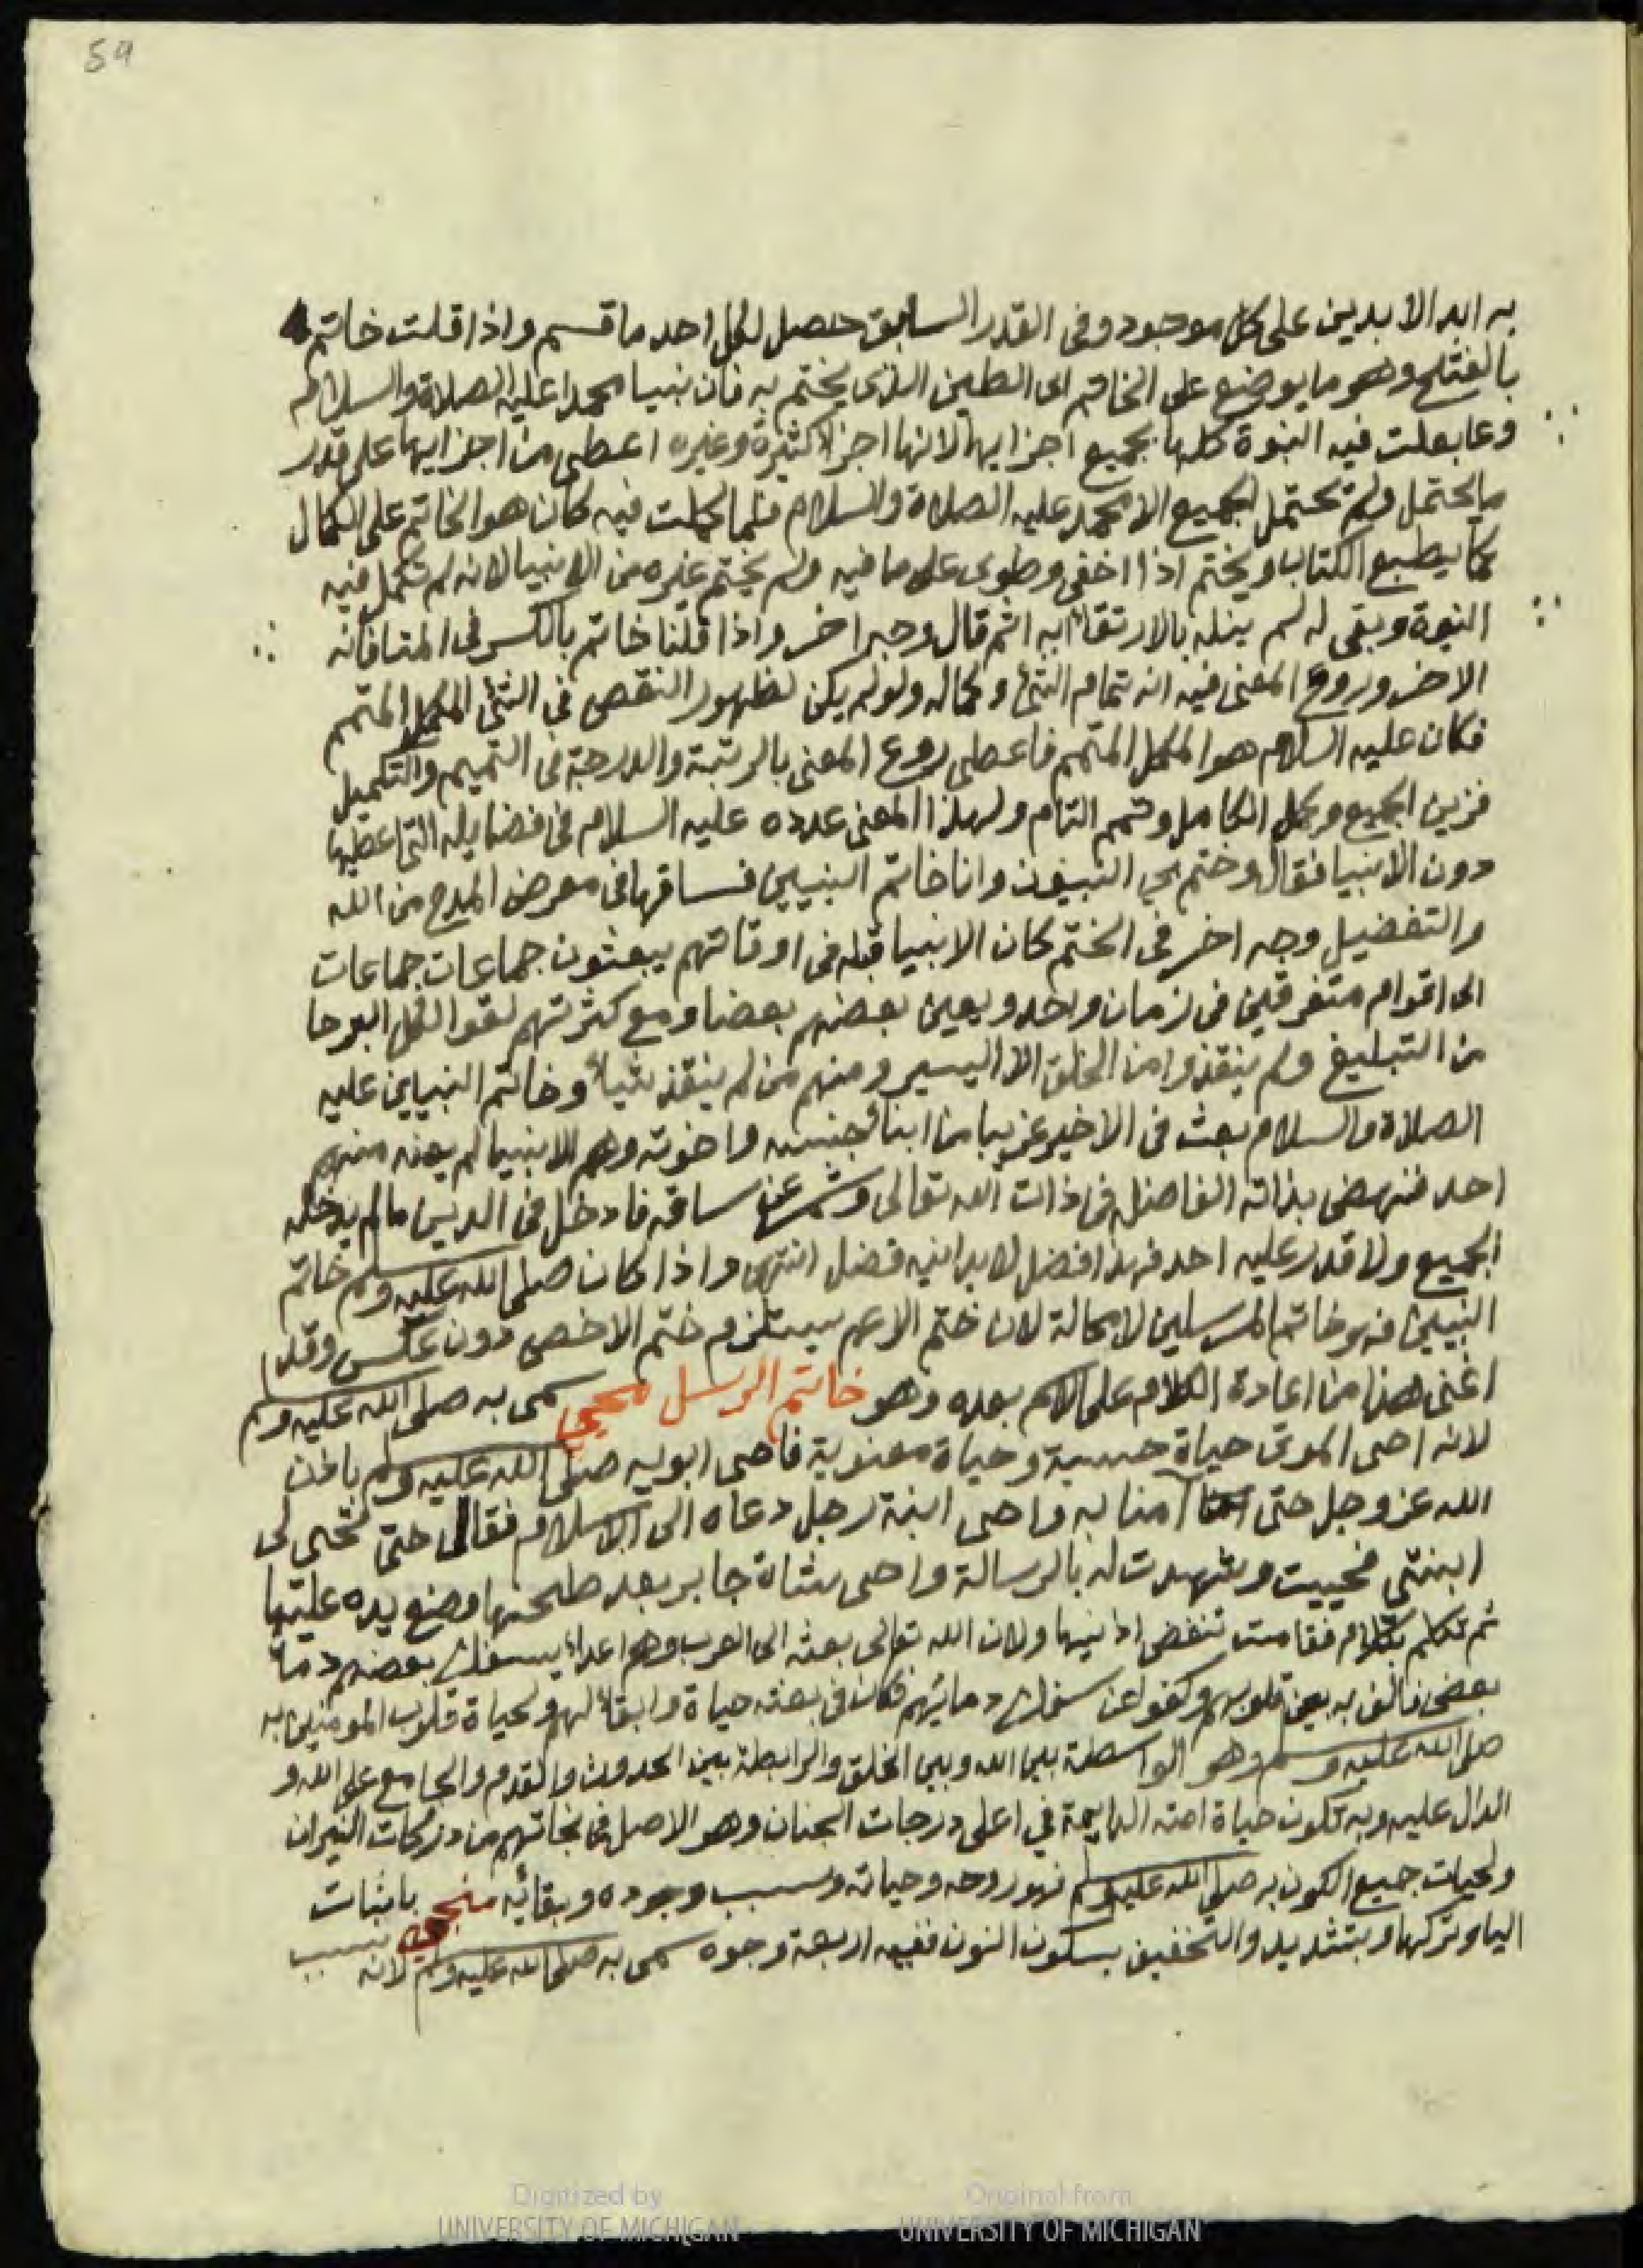 59
به ابد الابدين على كل موجود وفى القدر السابق حصل لكل احد ما قسم واذا قلت خاتم
بالفتح وهو ما يوضع على الخاتم اى الطين الذى يختم به فان نبينا محمدا عليه الصلاة والسلام
النبوة كلها بجميع اجزايها لانها اجزا كثيرة وغيره اعطى من اجزايها على قدر
ما يحتمل ولم تحتمل الجميع الا محمد عليه الصلاة والسلام فلما كملت فيه كان هو الخاتم على الكمال
كما يطبع الكتاب ويختم اذا اخفى وطوى على ما فيه ولم يختم غيره من الانبيا لانه لم تكمل فيه
النبوة وبقى له لم ينله بالارتقا ثم قال وجه اخر واذا قلنا خاتم بالكسر فى
الاخر وروع المعنى فيه انه تمام الشئ وكماله ولو لم يكن لظهور النقص فى الشئ المكمل المتمم
فكان عليه السلام هو المكمل المتمم فاعطى روع المعنى بالرتبة والدرجة فى التميم والتكميل
فزين الجميع وكمل الكامل وتمم التام ولهذا المعنى عدده عليه السلام فى فضايله التى اعطيها
دون الانبيا فقال وختم بى النبيون وانا خاتم النبيين فساقها فى معرض المدح من الله
والتفضيل وجه اخر فى الختم كان الانبيا قبله فى اوقاتهم يبعثون جماعات جماعات
الى اقوام متفرقين فى زمان واحد ويعين بعضهم بعضا ومع كثرتهم لقوا الكل
من التبليغ ولم ينقذوا من الخلق الا اليسير ومنهم من لم ينقذ شيا وخاتم النبيين عليه
الصلاة والسلام بعث فى الاخير غريبا من ابنا جنسه واخوته وهم الانبيا لم يعنه منهم
احد فنهض بذاته الفاضل فى ذات الله تعالى وشمر عن ساقه فادخل فى الدين ما لم يدخله
الجميع ولا قدر عليه احد فهذا فضل لا يدانيه فضل انتهى واذا كان صلى الله عليه وسلم خاتم
النبيين فهو خاتم المرسلين لا محالة لان ختم الاعم يستلزم ختم الاخص دون عكس وقد
اغنى هذا من اعادة الكلام على الاسم بعده وهو خاتم الرسل محيي سمى به صلى الله عليه وسلم
لانه احيى الموتى حياة حسية وحياة معنوية فاحيى ابويه صلى الله عليه وسلم باذن
الله عز وجل حتى آمنا به واحيى ابنة رجل دعاه الى الاسلام فقال حتى تحيى لى
ابنتى فحييت وشهدت له بالرسالة واحيى شاة جابر بعد طحنها وضع يده عليها
ثم تكلم بكلام فقامت تنفض اذنيها ولان الله تعالى بعثه الى العرب وهم اعدا يسفك بعضهم دما
بعض فالف به بين قلوبهم وكفوا عن سفك دمائهم فكان فى بعثه حياة وابقا لهم ولحياة قلوب المومنين به
صلى الله عليه وسلم وهو الواسطة بين الله وبين الخلق والرابطة بين الحدوث والقدم والجامع على الله و
الدال عليه وبه تكون حياة امته الدايمة فى اعلى درجات الجنان وهو الاصل فى نجاتهم من دركات النيران
ولحيات جميع الكون به صلى الله عليه وسلم فهو روحه وحياته وسبب وجوده وبقائه منجى باثبات
اليا وتركها وبتشديد والتخفيف بسكون النون ففيه اربعة وجوه سمى به صلى الله عليه وسلم لانه سبب
Digitized by
UNIVERSITY OF MICHIGAN
Original from
UNIVERSITY OF MICHIGAN